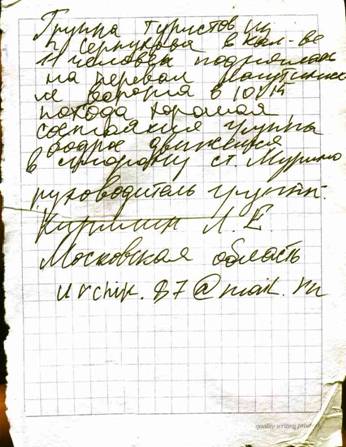 Группа туристов из
г. Серпухова в кол-ве
11 человек поднялась
на перевал
в 10ч14
похода хорошая
состояние группы
бодрое движемся
в сторону ст. Мурино
руководитель группы:
Л. Е.
Московская область
urchik.87@mail.ru
quality writing